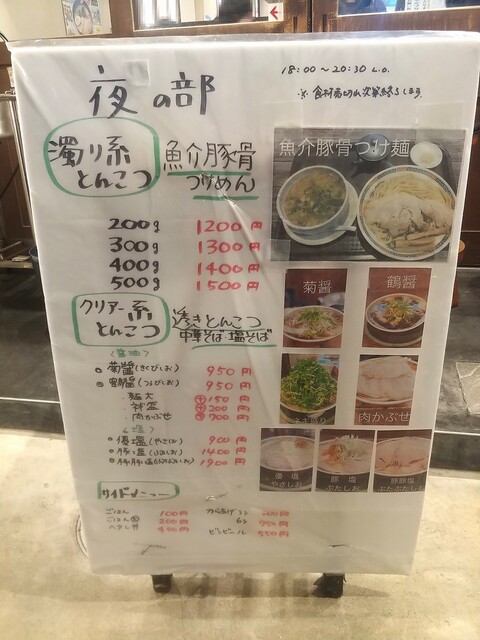 夜の部
18:00～20:30 L.O.
※食材売切れ次第終了します
濁り系
とんこつ
魚介豚骨
つけめん
200g 1200円
300g 1300円
400g 1400円
500g 1500円
クリアー系
とんこつ
透きとんこつ
中華そば・塩そば
<醤油>
菊醤(きくびしお) 950円
鶴醤(つるびしお) 950円
・麺大 +150円
・ネギ盛 +200円
・肉かぶせ +700円
<塩>
優塩(やさしお) 900円
豚塩(ぶたしお) 1400円
豚豚塩(ぶたぶたしお) 1900円
サイドメニュー
ごはん 100円
ごはん大 200円
からあげ
6コ 750円
ビンビール 550円
魚介豚骨つけ麺
菊醤
鶴醤
ネギ盛り
肉かぶせ
優塩
やさしお
豚塩
ぶたしお
豚豚塩
ぶたぶたしお